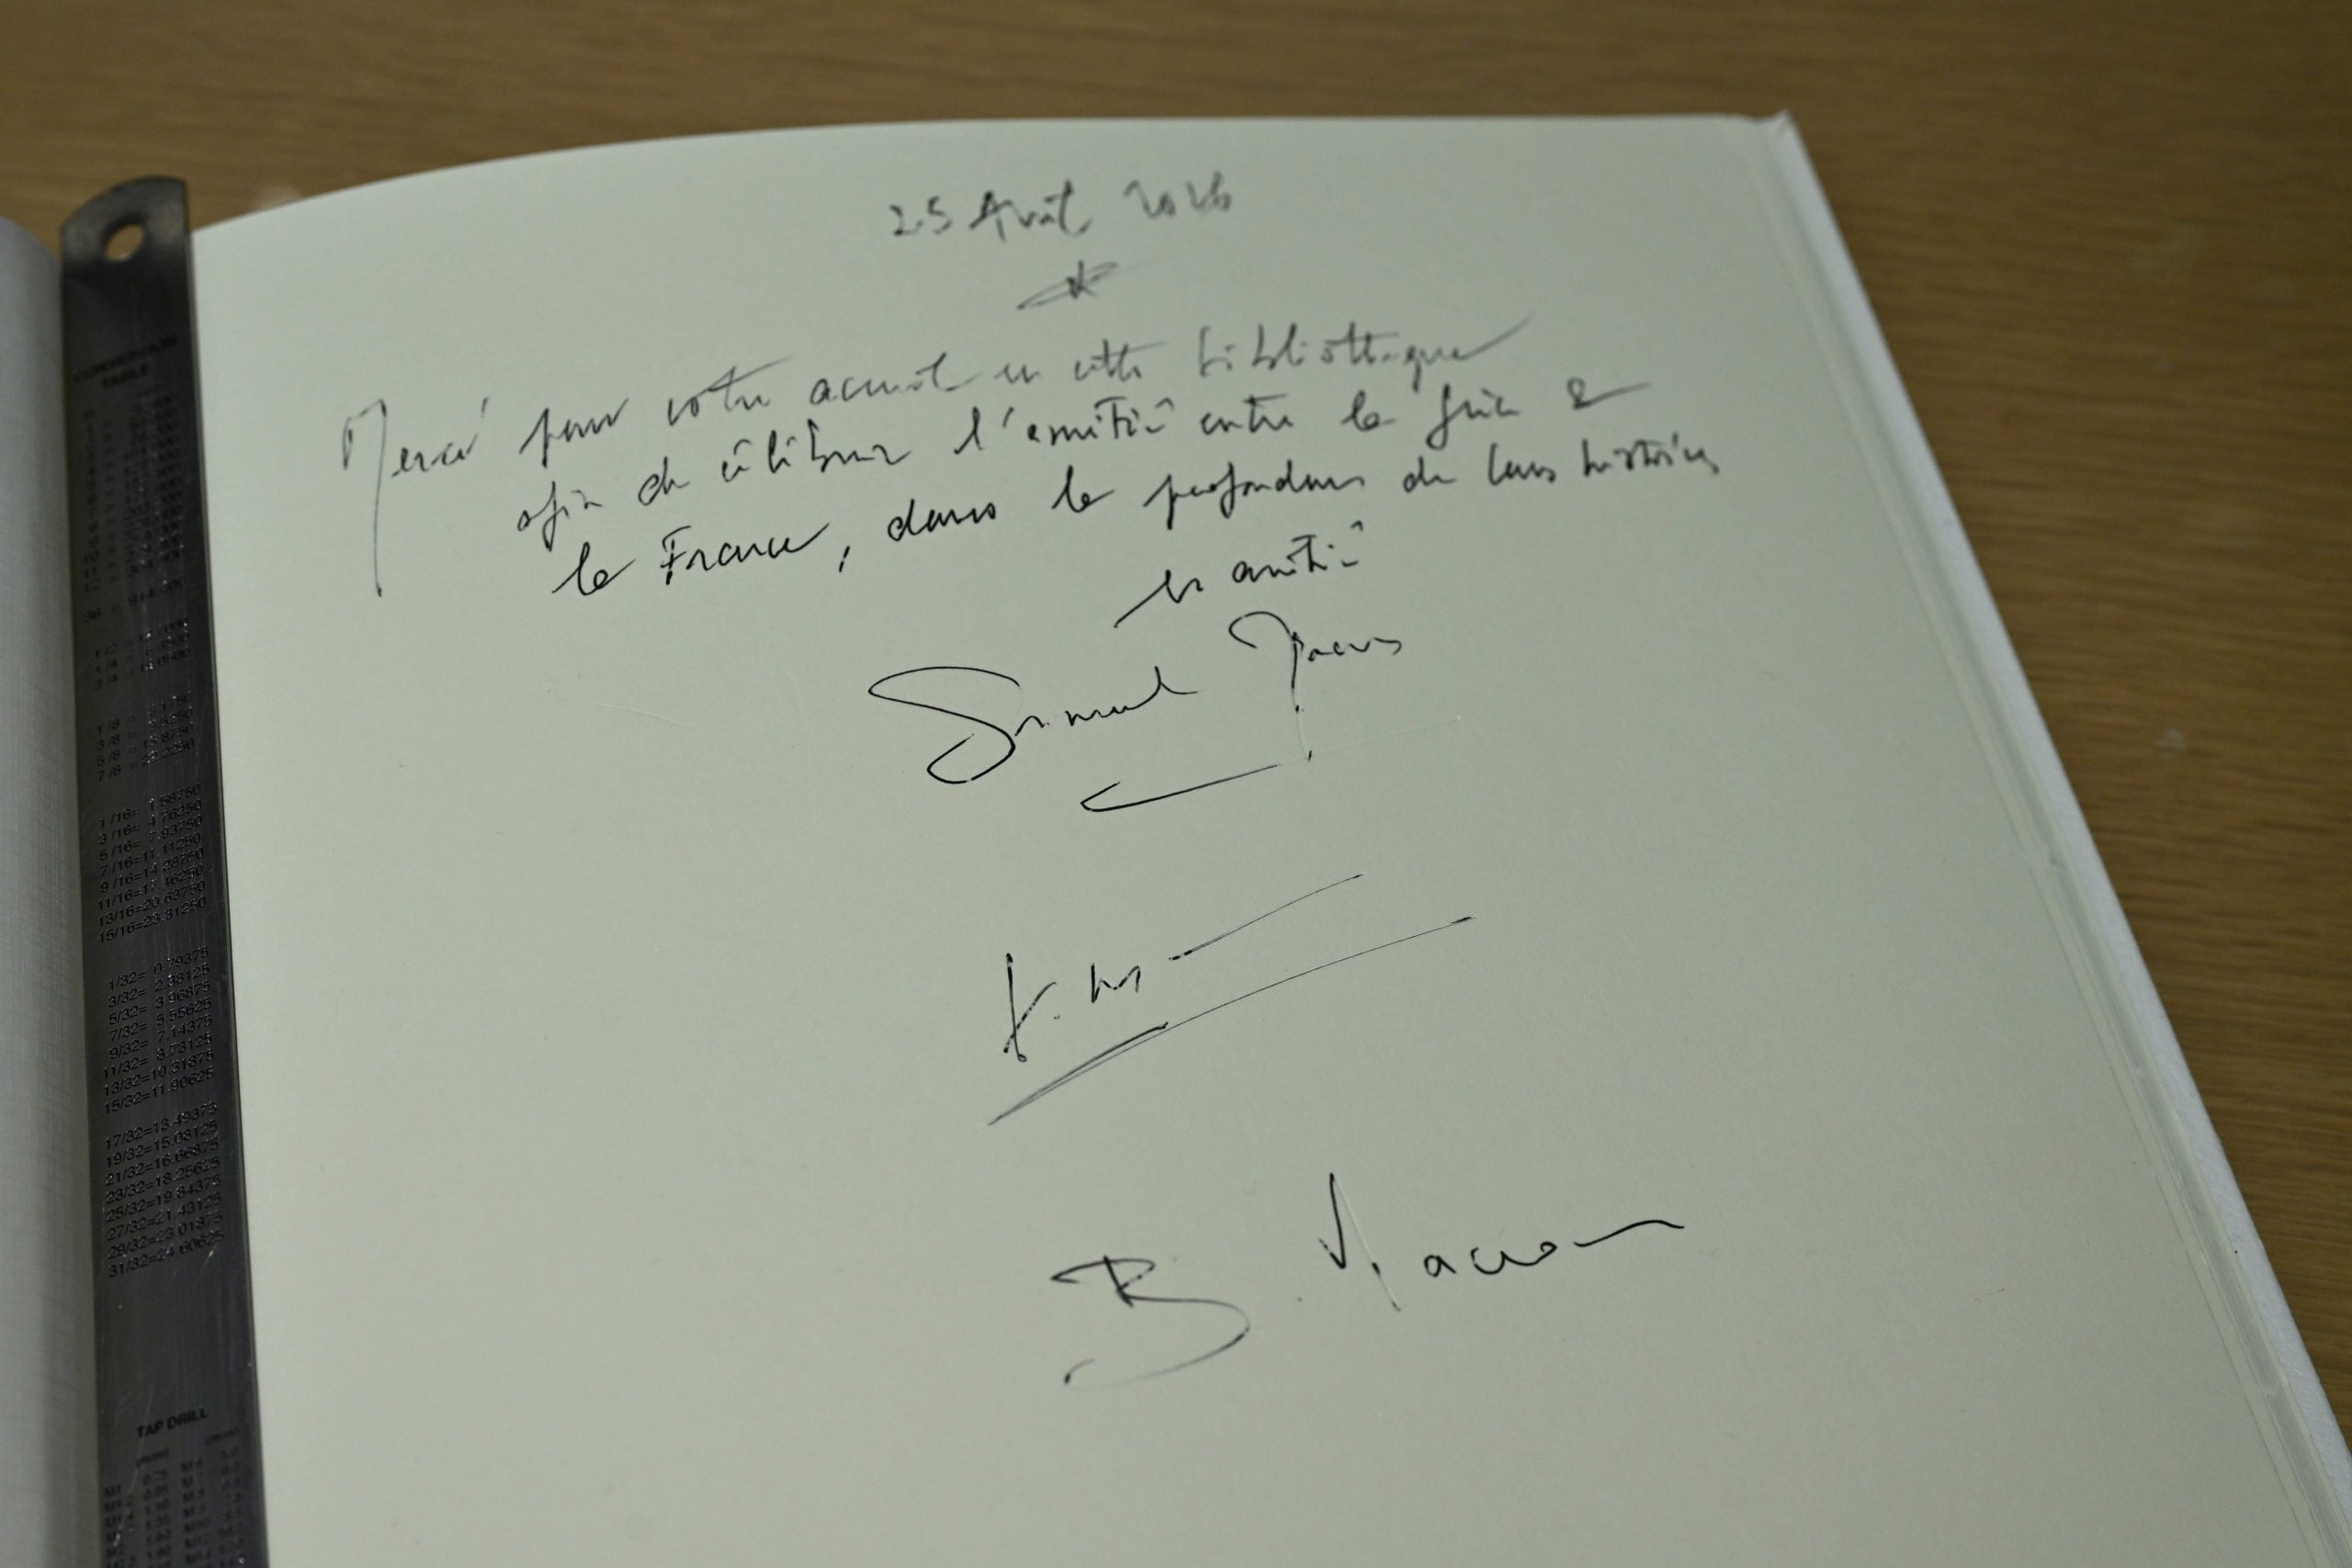 CONVERSION
TABLE
1/8 =
3/8 =
5/8 = 15.8750
7/8 = 22.2250
1/16= 1.58750
3/16= 4.76250
5/16= 7.93750
7/16=11.11250
9/16=14.28750
11/16=17.46250
13/16=20.63750
15/16=23.81250
1/32= 0.79375
3/32= 2.38125
5/32= 3.96875
7/32= 5.55625
9/32= 7.14375
11/32= 8.73125
13/32=10.31875
15/32=11.90625
17/32=13.49375
19/32=15.08125
21/32=16.66875
23/32=18.25625
25/32=19.84375
27/32=21.43125
29/32=23.01875
31/32=24.60625
TAP DRILL
25 Avril 2026
Merci pour votre accueil en cette bibliothèque
afin de célébrer l'amitié entre la Grèce &
la France, dans la profondeur de leurs histoires
en amitié
B. Macron